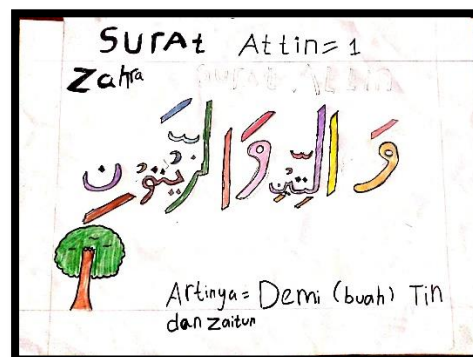 Surat Attin = 1
Zahra
Surat Attin
وَالتِّيْنِ وَالزَّيْتُوْنِ
Artinya = Demi (buah) Tin
dan zaitun